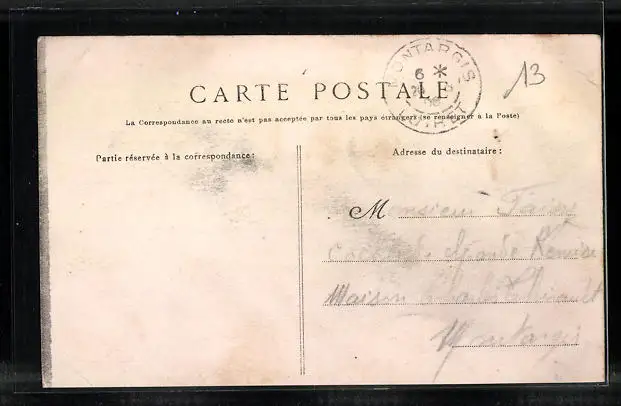 MONTARGIS
6 *
LOIRET
13
CARTE POSTALE
La Correspondance au recto n'est pas acceptée par tous les pays étrangers (se renseigner à la Poste)
Partie réservée à la correspondance:
Adresse du destinataire:
M onsieur
Grande Remise
Maison
Montargis